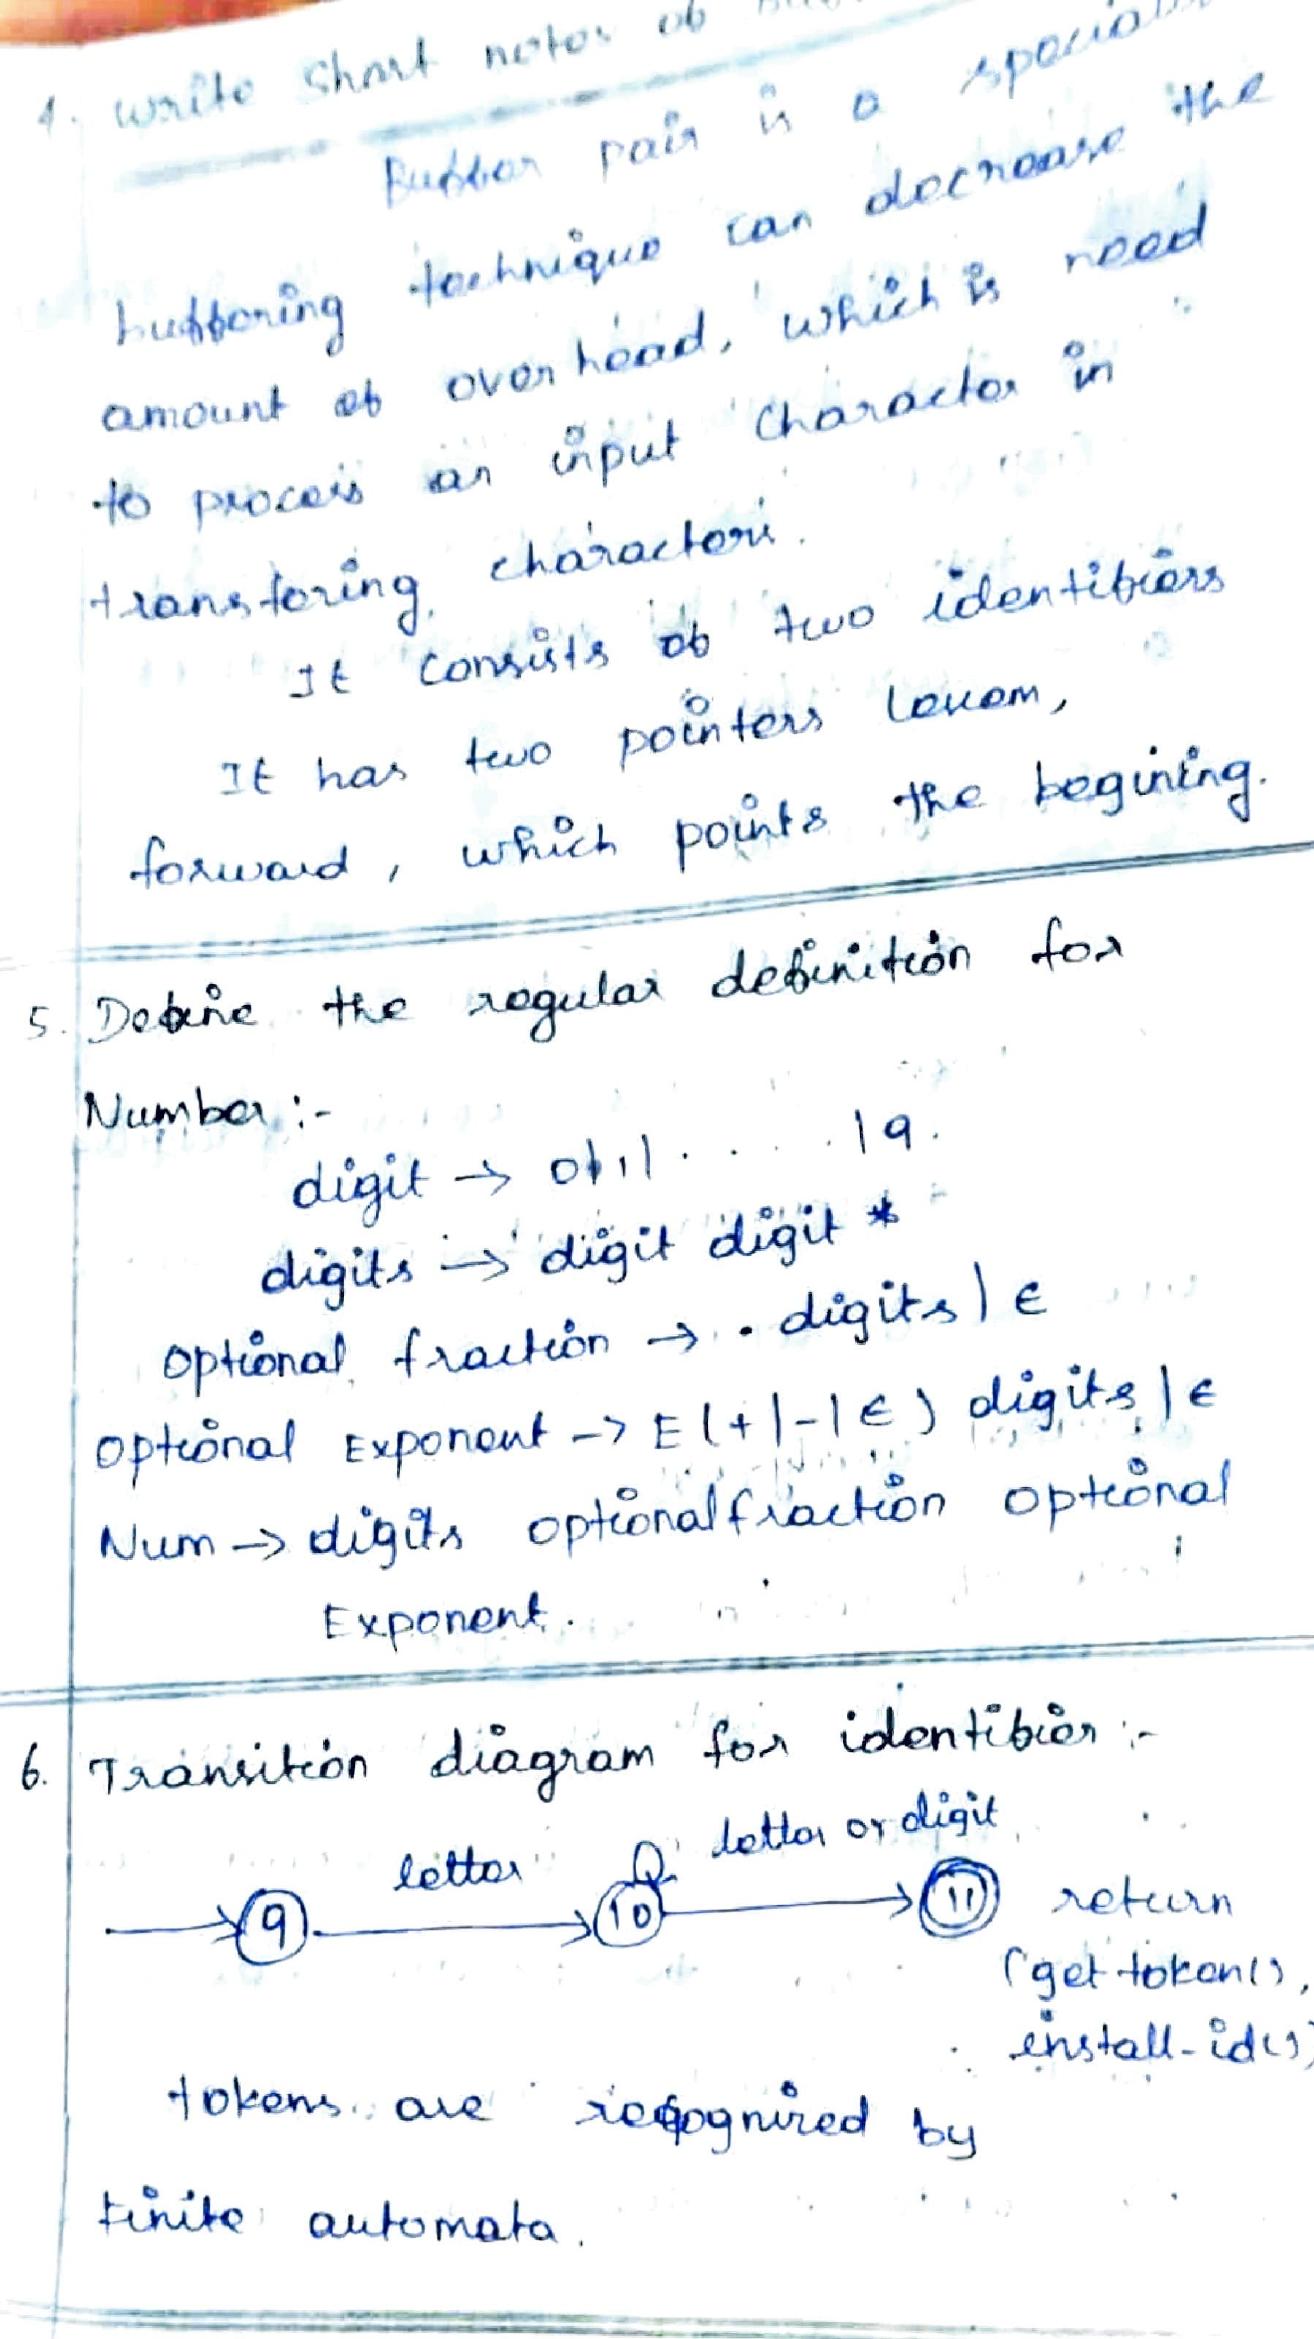 4. Write Short notes of
Buffer pair is a special
buffering technique can decrease the
amount of over head, which is need
to process an input character in
transfering characters.
It consists of two identifiers
It has two pointers lexem,
forward, which points the begining.
5. Define the regular definition for
Number :-
digit → 0|1| . . . . |9.
digits → digit digit *
Optional fraction → . digits | ϵ
Optional Exponent → E (+|-|ϵ) digits | ϵ
Num → digits optionalfraction optional
Exponent.
6. Transition diagram for identifier :-
letter letter or digit
9 10 11 return
(get token(),
install-id()
tokens are recognized by
finite automata.